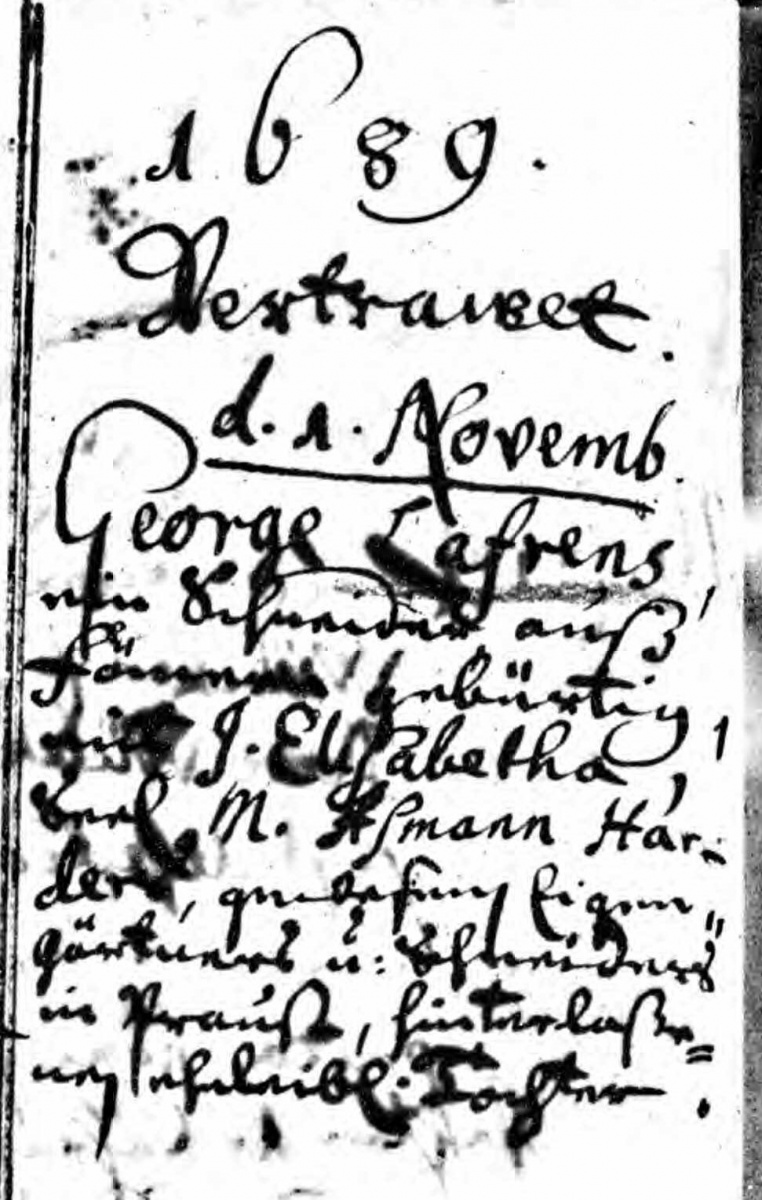 1689.
Vertrawet.
d. 1. Novemb.
George Lafrens,
ein Schneider auß
gebürtig,
mit J. Elisabetha,
Seel. M. Aßmann Har-
ders, gewesenen Eigen„
gärtners u: Schneiders
in Praust, hinterlaße=
nen eheleibl. Tochter.